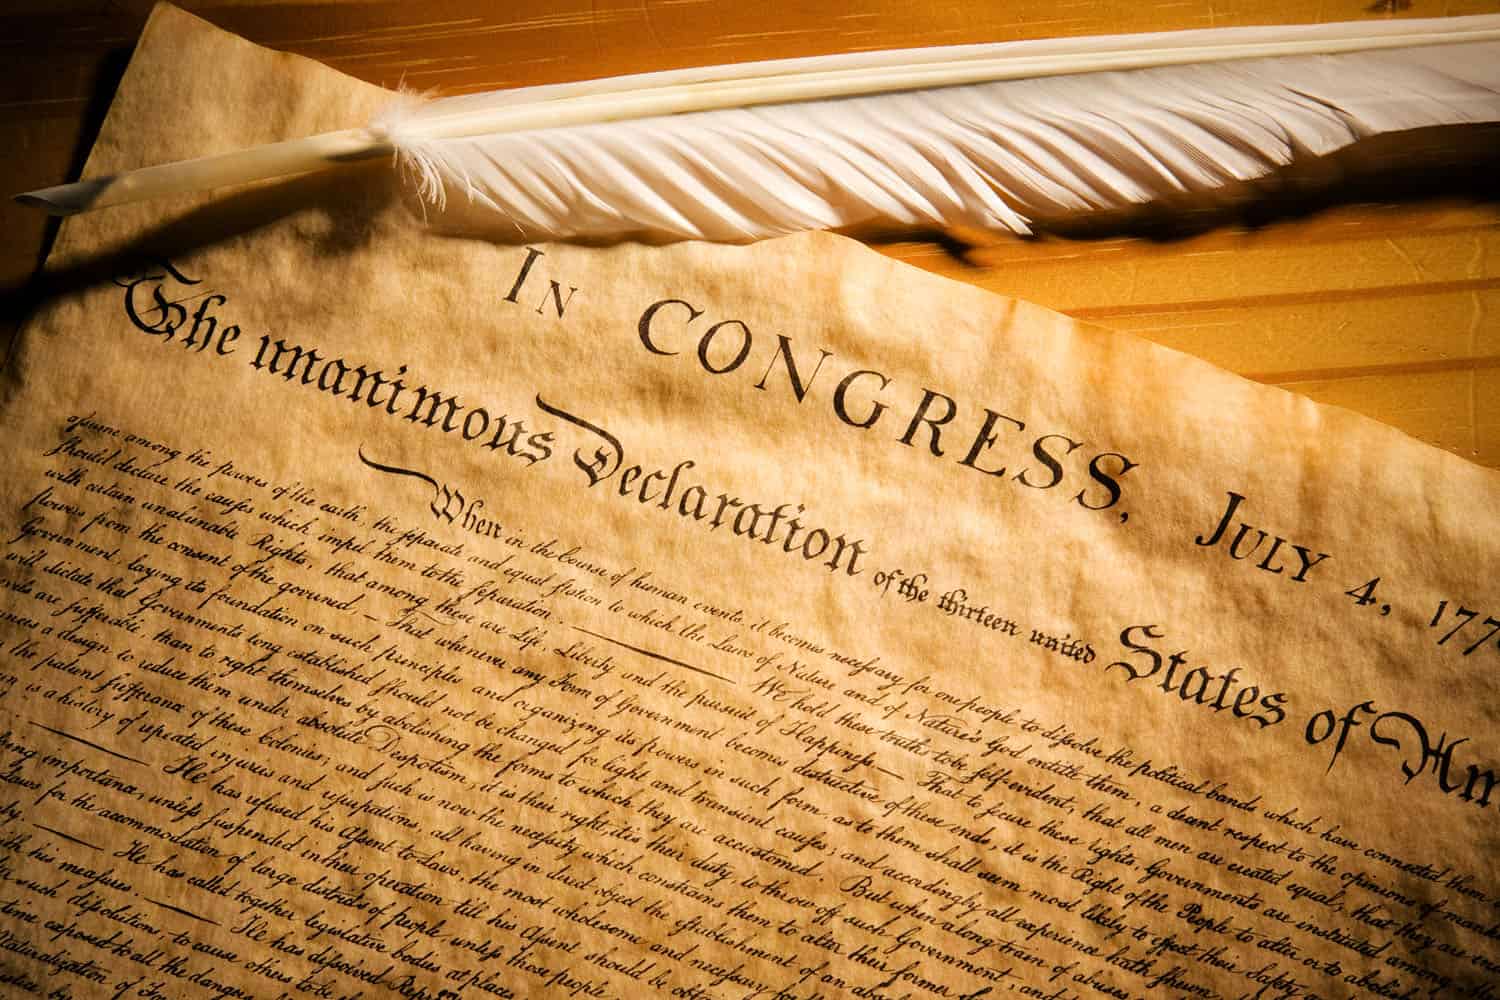 In CONGRESS, July 4,
The unanimous Declaration of the thirteen united States of
When in the Course of human events, it becomes necessary for one people to dissolve the political bands which have connected them
assume among the powers of the earth, the separate and equal station to which the Laws of Nature and of Nature's God entitle them, a decent respect to the opinions of
should declare the causes which impel them to the separation. — We hold these truths to be self-evident, that all men are created equal, that they are
with certain unalienable Rights, that among these are Life, Liberty and the pursuit of Happiness. — That to secure these rights, Governments are instituted among
powers from the consent of the governed, — That whenever any Form of Government becomes destructive of these ends, it is the Right of the People to alter or to abolish
Government, laying its foundation on such principles and organizing its powers in such form, as to them shall seem most likely to effect their Safety
will dictate that Governments long established should not be changed for light and transient causes; and accordingly all experience hath shewn
are sufferable, than to right themselves by abolishing the forms to which they are accustomed. But when a long train of abuses
a design to reduce them under absolute Despotism, it is their right, it is their duty, to throw off such Government, and
the patient sufferance of these Colonies; and such is now the necessity which constrains them to alter their former
is a history of repeated injuries and usurpations, all having in direct object the establishment of an
— He has refused his Assent to Laws, the most wholesome and necessary for
importance, unless suspended in their operation till his Assent should be
Laws for the accommodation of large districts of people, unless those people
— He has called together legislative bodies at places
his measures. — He has dissolved
such dissolutions, to cause others to be
time exposed to all the
of